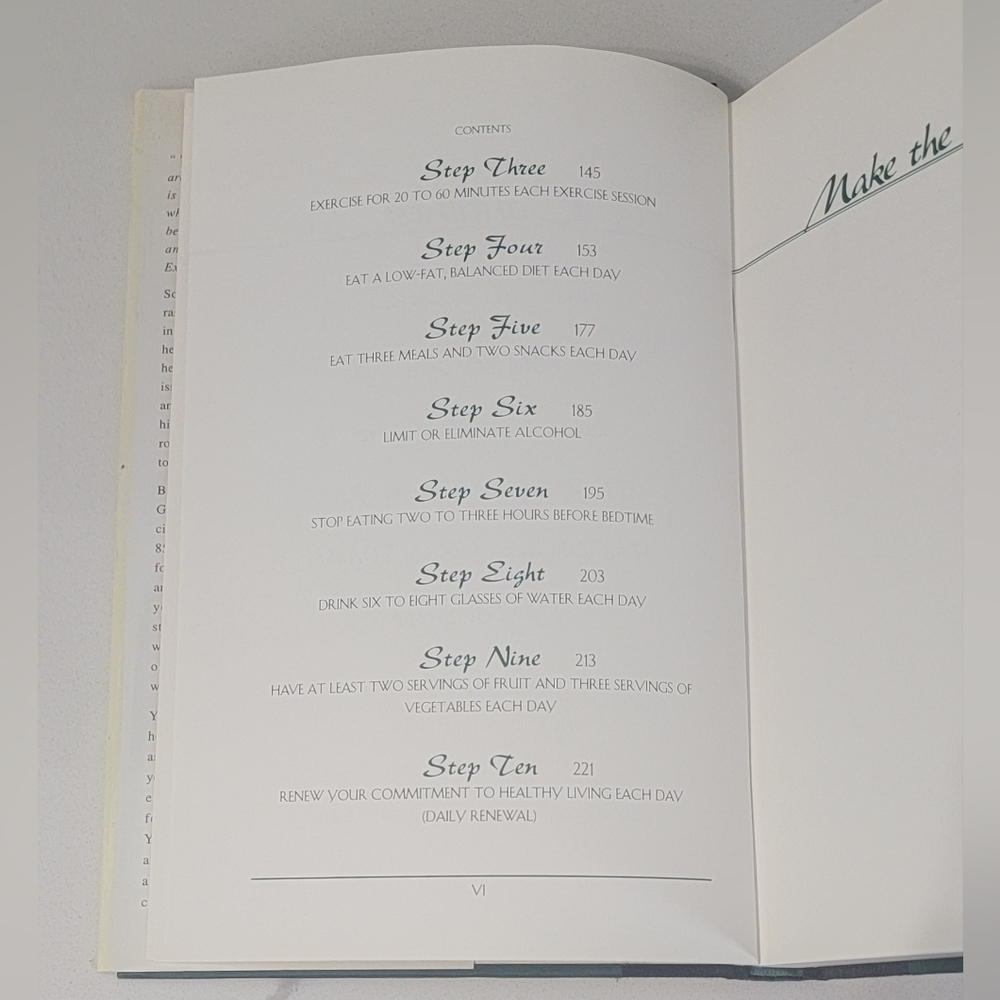 CONTENTS
Step Three 145
EXERCISE FOR 20 TO 60 MINUTES EACH EXERCISE SESSION
Step Four 153
EAT A LOW-FAT, BALANCED DIET EACH DAY
Step Five 177
EAT THREE MEALS AND TWO SNACKS EACH DAY
Step Six 185
LIMIT OR ELIMINATE ALCOHOL
Step Seven 195
STOP EATING TWO TO THREE HOURS BEFORE BEDTIME
Step Eight 203
DRINK SIX TO EIGHT GLASSES OF WATER EACH DAY
Step Nine 213
HAVE AT LEAST TWO SERVINGS OF FRUIT AND THREE SERVINGS OF
VEGETABLES EACH DAY
Step Ten 221
RENEW YOUR COMMITMENT TO HEALTHY LIVING EACH DAY
(DAILY RENEWAL)
VI
Make the